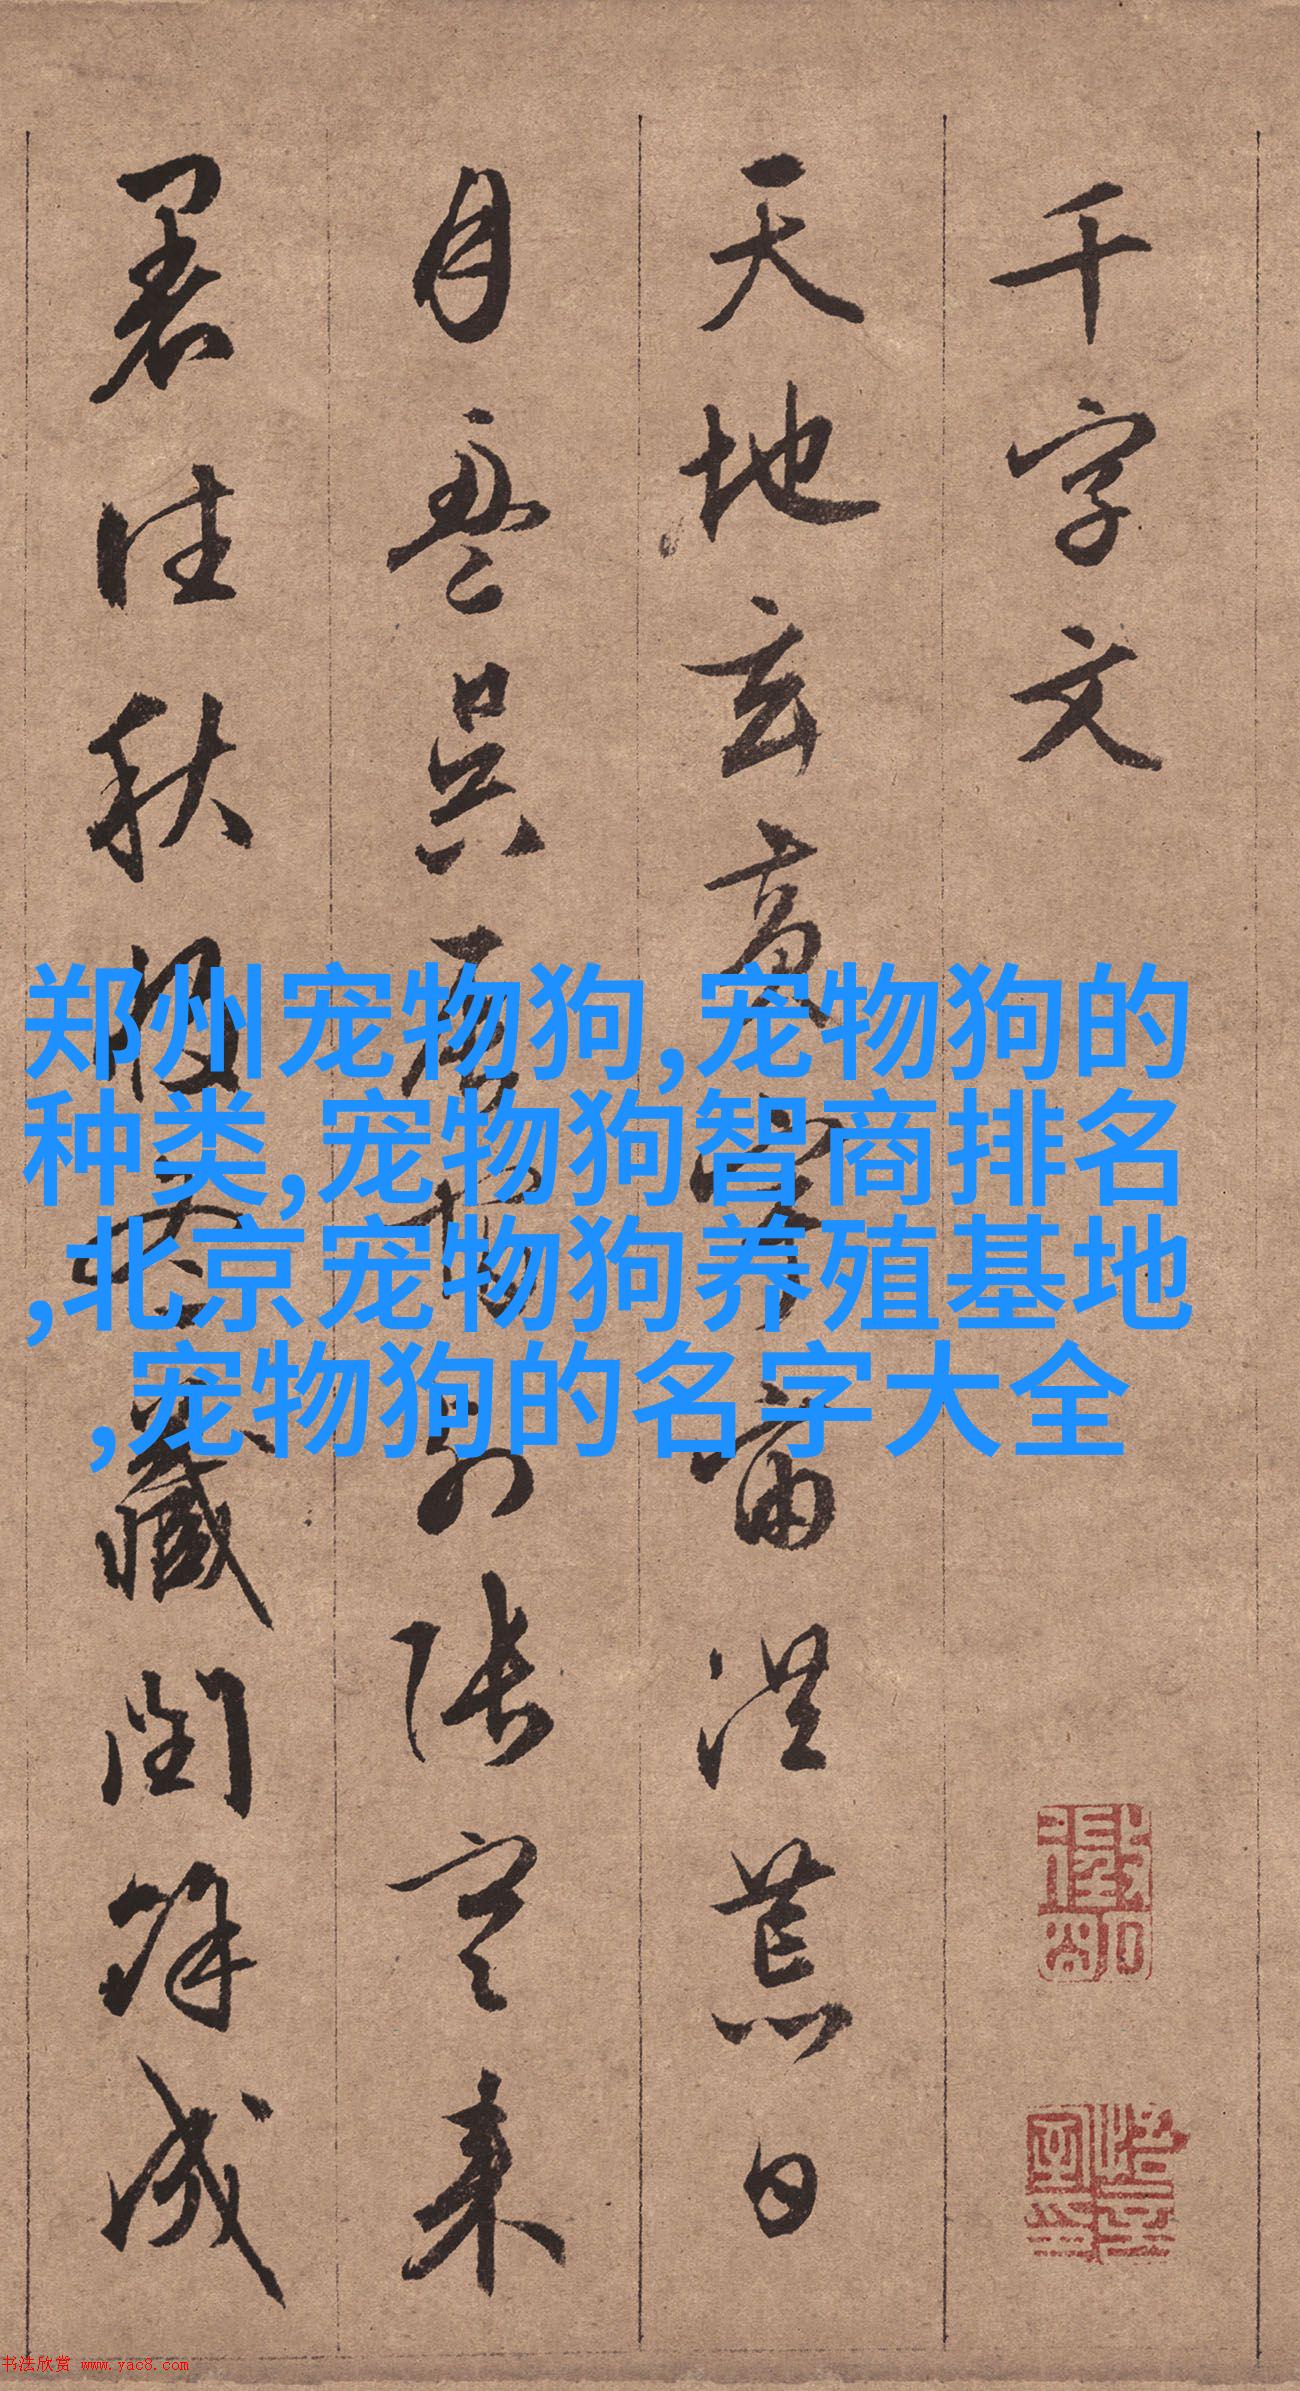 千字文
天地玄黃宇宙洪荒日
月盈昃辰宿列張寒來
暑往秋收冬藏閏餘成
郑州宠物狗,宠物狗的
种类,宠物狗智商排名
,北京宠物狗养殖基地
,宠物狗的名字大全
书法欣赏 www.yac8.com